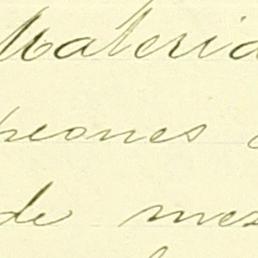 Materia
peones
de mes